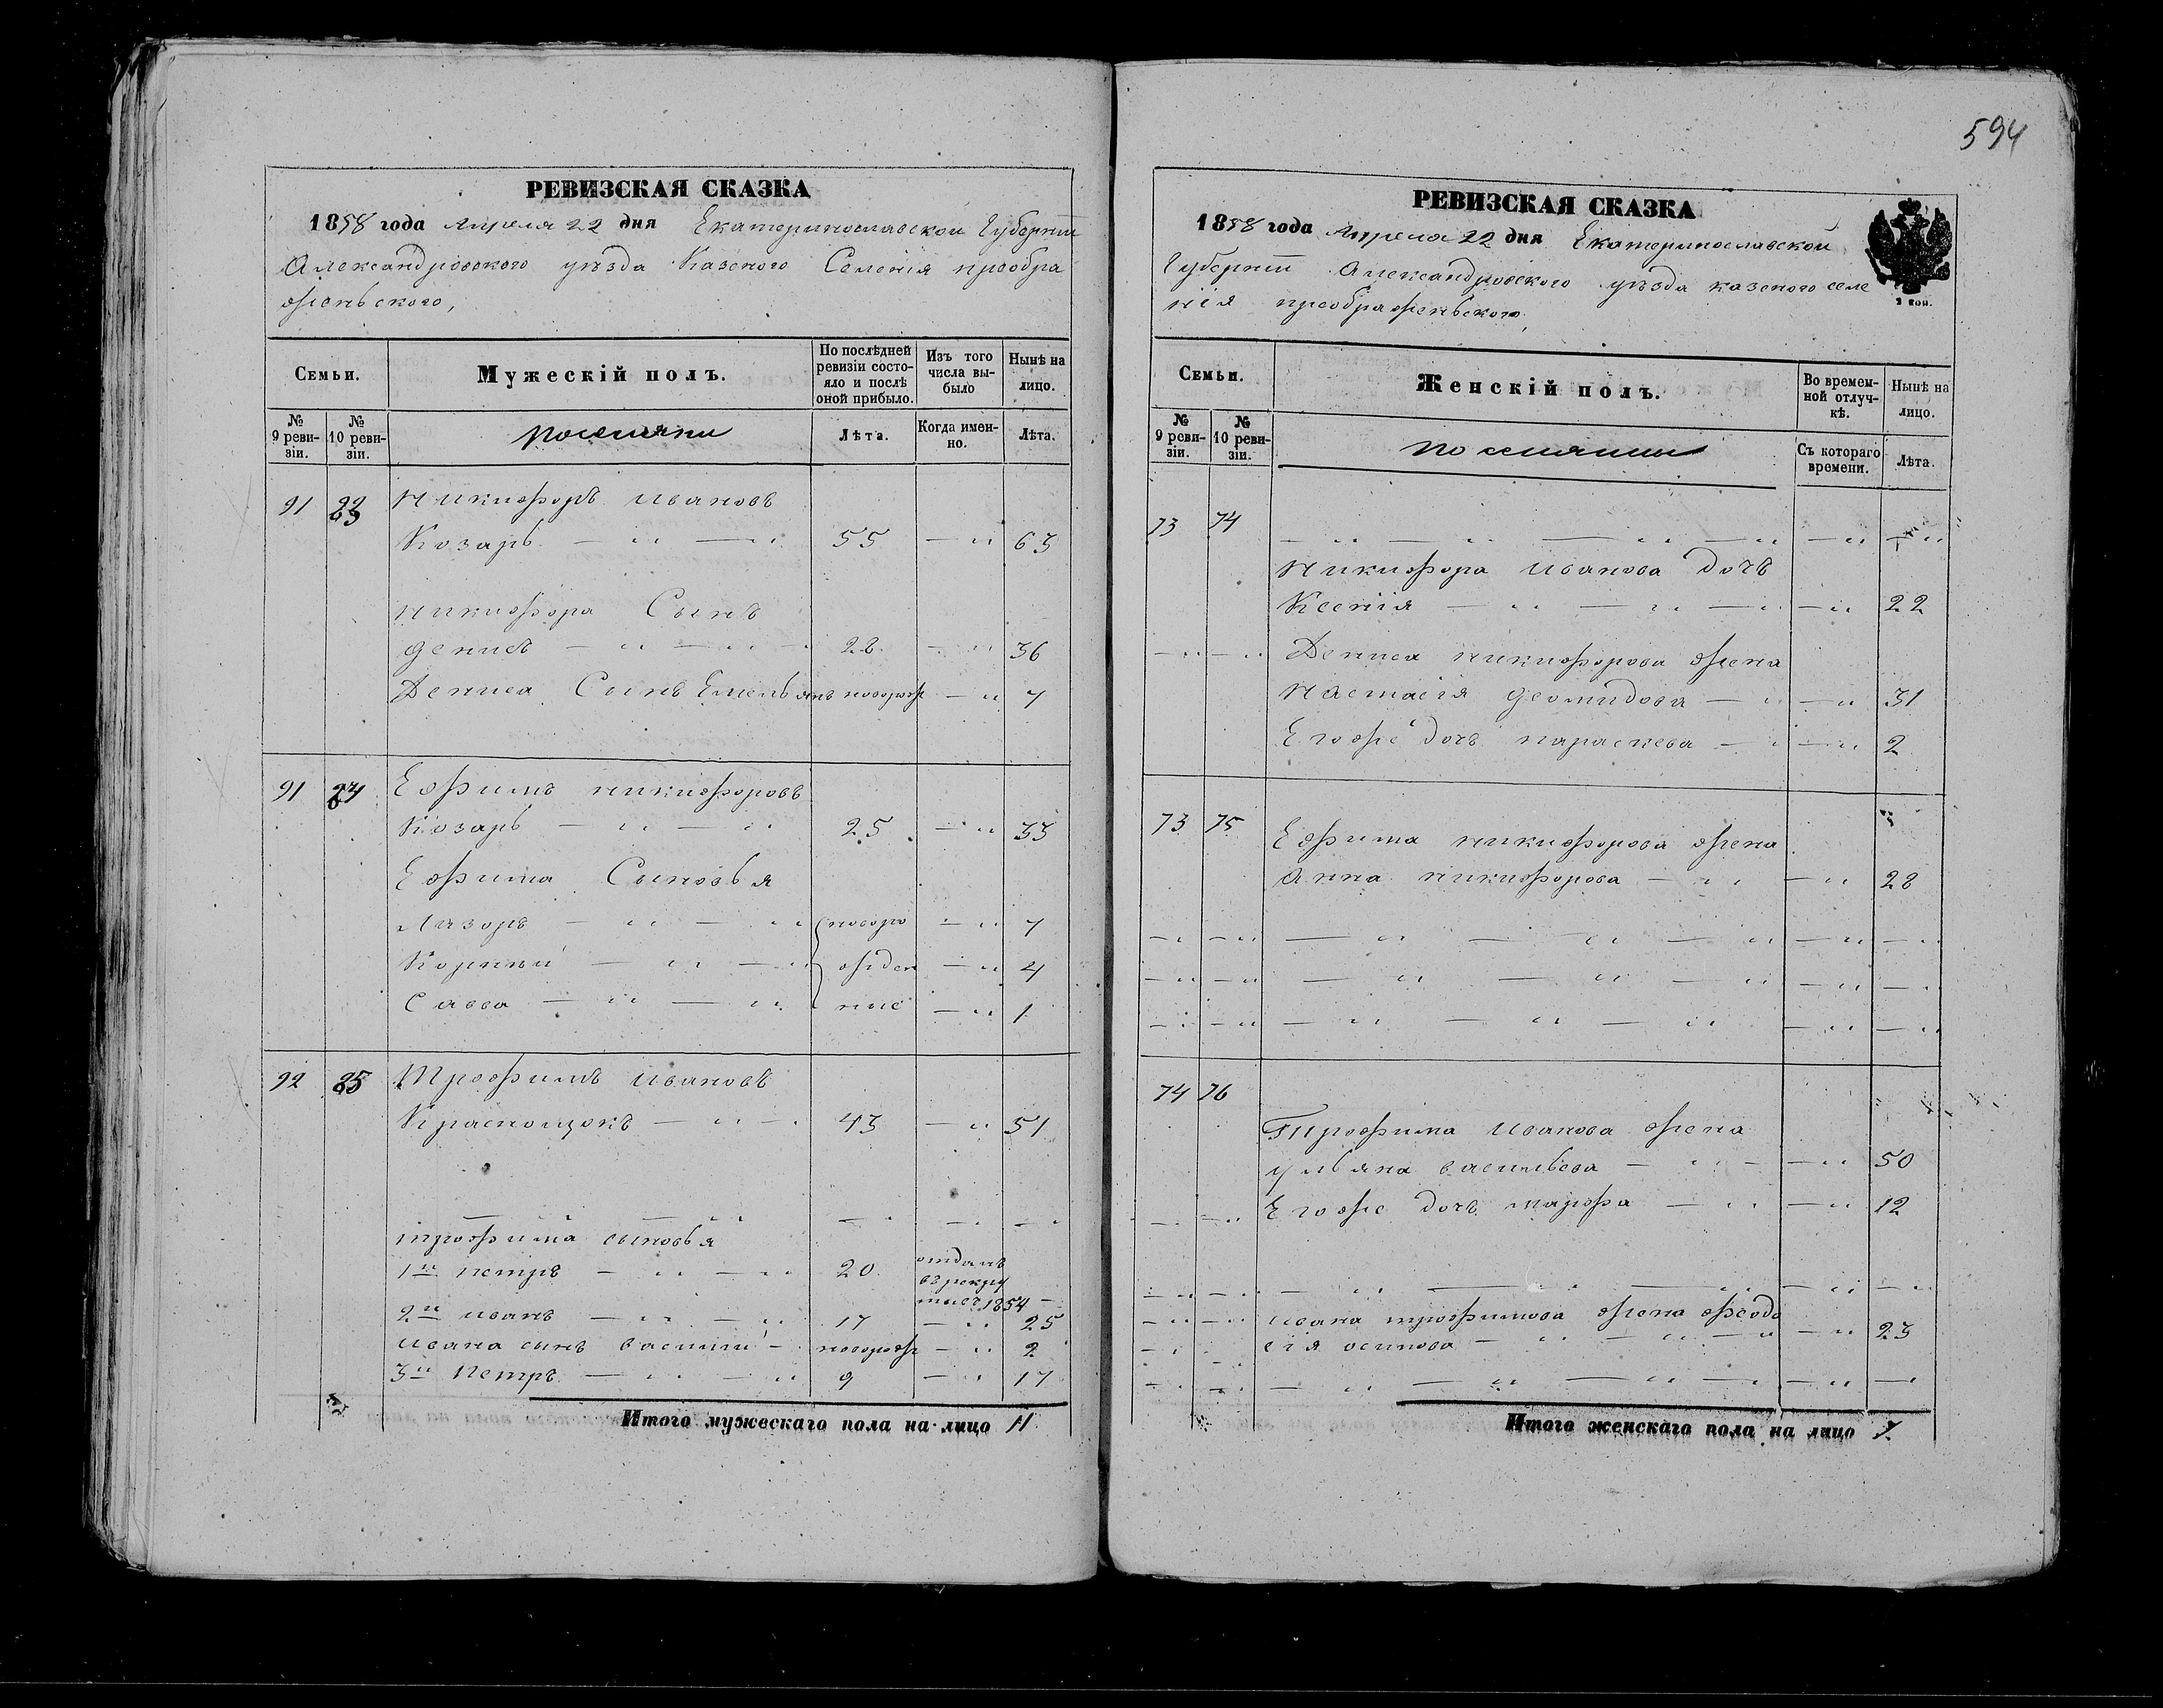 594
РЕВИЗСКАЯ СКАЗКА
1858 года Апреля 22 дня Екатеринославской Губернии
Александровского уезда Казеного Селения преобра
женьского,
Семьи.
Мужескій полъ.
По послѣдней ревизіи состояло и послѣ оной прибыло.
Изъ того числа выбыло
Нынѣ на лицо.
№ 9 ревизіи.
№ 10 ревизіи.
поселяни
Лѣта.
Когда именно.
Лѣта.
91 Никифоръ Ивановъ
Козарь — „ — „ 55 — „ 63
никифора Сынъ
денисъ — „ — „ 28 — „ 36
Дениса Сынъ Емельянъ новорож — „ 7
91 Ефимъ никифоровъ
Козарь — „ — „ 25 — „ 33
Ефима Сыновья
Лазоръ — „ — „ новоро — „ 7
Корний — „ — „ жден — „ 4
Савва — „ — „ ние — „ 1
92 Трофимъ Ивановъ
Краснощокъ — „ — 43 — „ 51
трофима сыновья
1й петръ — „ — „ 20 отданъ
въ рекру
ты въ 1854 —
2й иванъ — „ — „ 17 — „ 25
ивана сынъ василий — новорож — „ 2
3й Петръ — „ — „ 9 — „ 17
Итого мужескаго пола на лицо 11
РЕВИЗСКАЯ СКАЗКА
1858 года Апреля 22 дня Екатеринославской
Губернии Александровского уезда казеного селе
ния преображеньского,
Семьи.
Женскій полъ.
Во временной отлучкѣ.
Нынѣ на лицо.
№ 9 ревизіи.
№ 10 ревизіи.
поселянны
Съ котораго времени.
Лѣта.
73 74
Никифора Иванова дочь
Ксения — „ — „ — „ — „ 22
Дениса никифорова жена
Настасия деомидова — „ — „ 31
Егоже дочь параскева — „ — „ 2
73 75 Ефима никифорова жена
Анна никифорова — „ — „ 28
74 76
Трофима Иванова жена
ульяна васильева — „ — — „ 50
Егоже дочь марфа — „ — „ 12
Ивана трофимова жена феодо
сия осипова — „ — „ — „ — „ 23
Итого женскаго пола на лицо 7